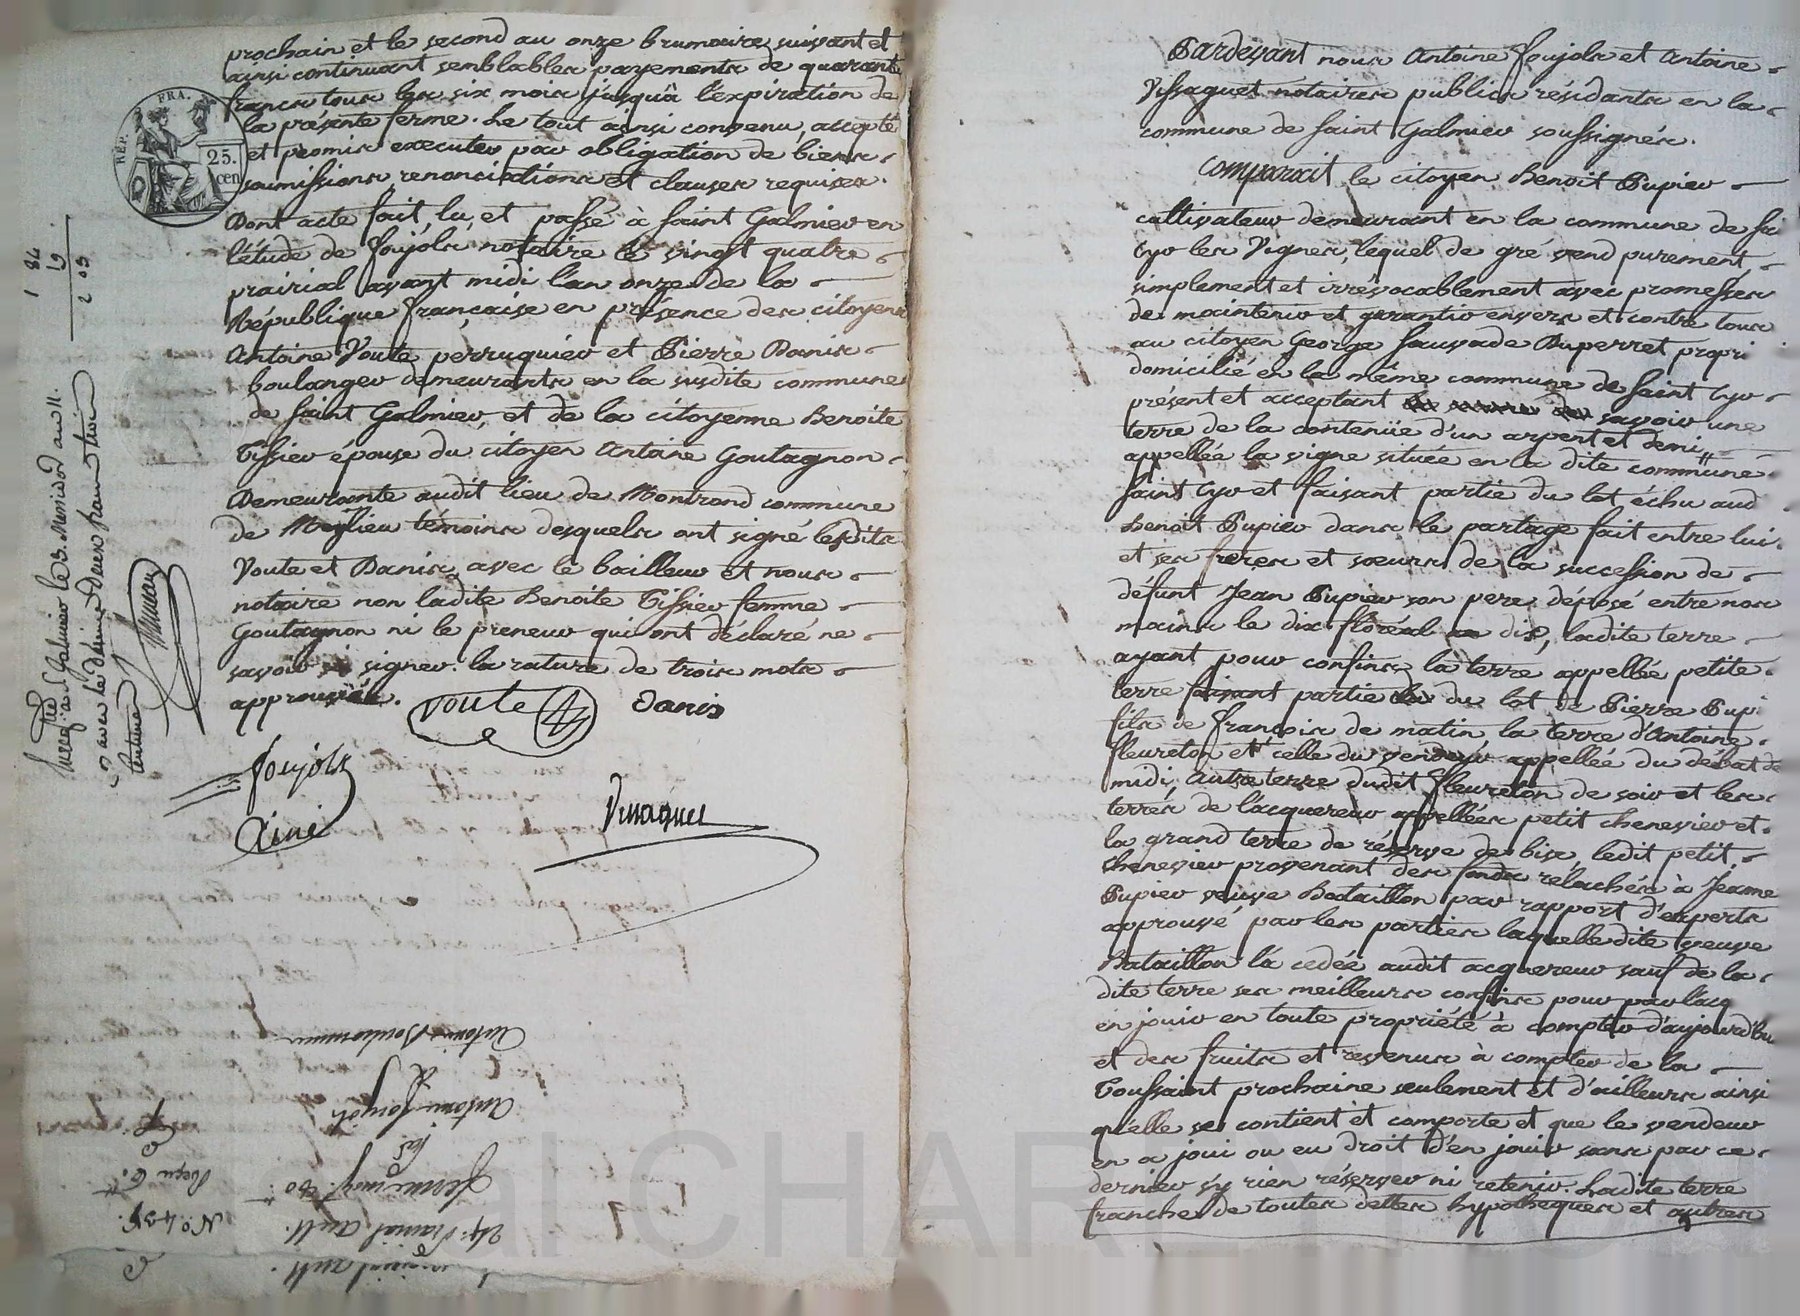 prochain et le second au onze brumaire suivant et
ainsi continuant semblables payements de quarante
francs tous les six mois jusqu'à l'expiration de
la présente ferme. Le tout ainsi convenu, accepté
et promis executer par obligation de biens
soumissions, renonciations et clauses requises.
Dont acte fait, lu, et passé à Saint Galmier en
l'étude de Joujols notaire le vingt quatre
prairial avant midi l'an onze de la
République française en présence des citoyens
Antoine Voute perruquier et Pierre Danis
boulanger demeurants en la susdite commune
de Saint Galmier, et de la citoyenne Benoite
Tissier épouse du citoyen Antoine Goutagnon
Demeurante audit lieu de Montrond commune
de Meylieu témoins desquels ont signé lesdits
Voute et Danis avec le bailleur et nous
notaire non ladite Benoite Tissier femme
Goutagnon ni le preneur qui ont déclaré ne
savoir signer. la rature de trois mots
approuvée.
Voute Danis
Joujols
Ainé
Vissaguet
RÉP. FRA.
25.
cen
184
19
203
le 3. Messidor an 11.
Antoine Joujols
24. Prairial an 11.
Reçu
Pardevant nous Antoine Joujols et Antoine
Vissaguet notaires publics résidants en la
commune de Saint Galmier soussignés.
Comparait le citoyen Benoit Pupier
cultivateur demeurant en la commune de St
Cyr les Vignes, lequel de gré vend purement
simplement et irrévocablement avec promesses
de maintenir et garantir envers et contre tous
au citoyen George Sauvade Duperret propri
domicilié en la même commune de Saint Cyr
présent et acceptant savoir une
terre de la contenüe d'un arpent et demi
appellée la vigne située en la dite commune
Saint Cyr et faisant partie du lot échu aud
Benoit Pupier dans le partage fait entre lui
et ses freres et soeurs de la succession de
défunt Jean Pupier son pere déposé entre nos
mains le dix floréal dix, ladite terre
ayant pour confins la terre appellée petite
terre faisant partie du lot de Pierre Pupi
fils de François de matin, la terre d'Antoine
Fleureton et celle du vendeur appellée du débat de
midi, autre terre dudit Fleureton de soir et les
terres de l'acquereur appellées petit chenevier et
la grand terre de réserve de bise, ledit petit
chenevier provenant des fonds relachés à Jeanne
Pupier veuve Bataillon par rapport d'experts
approuvé par les parties laquelle dite veuve
Bataillon l'a cedée audit acquereur sauf de la
dite terre ses meilleurs confins pour par l'acq
en jouir en toute propriété à compter d'aujourd'hui
et des fruits et revenus à compter de la
Toussaint prochaine seulement et d'ailleurs ainsi
qu'elle se contient et comporte et que le vendeur
en a joui ou eu droit d'en jouir sans par ce
dernier s'y rien réserver ni retenir. Ladite terre
franche de toutes dettes hypotheques et autres
al CHARENTON